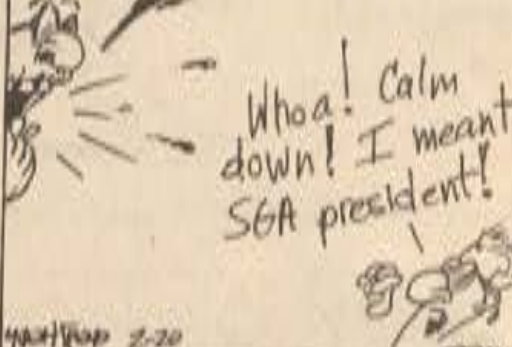 Whoa! Calm
down! I meant
SGA president!
2-20